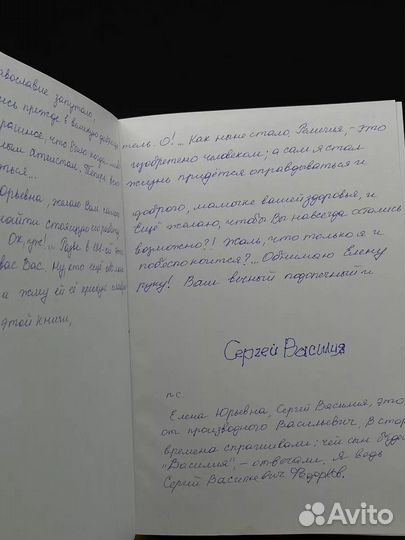 авославие запутало,
ись прежде в
рашное, что было когда
ным атеистом. Теперь всю
ться...
Юрьевна, желаю Вам самого
найти стоящую
Ох, уж!...
вас Вас. Ну кто ещё
и жму ей её
этой книги,
тель. О!... Как ныне стало, Религия, - это
изобретено человеком; а сам я стал
жизнь придётся оправдываться и
доброго, мамочке вашей здоровья, и
Ещё желаю, чтобы Вы навсегда остались
возможно?! Жаль, что только я и
побеспокоится?... Обнимаю Елену
руку! Ваш вечный подопечный и
Сергей Василия
п.с.
Елена Юрьевна, Сергей Василия, это
от производного Васильевич. В стар
времена спрашивали: чей сын буде
"Василия", - отвечали. Я ведь
Сергей Васильевич Федорков.
Avito